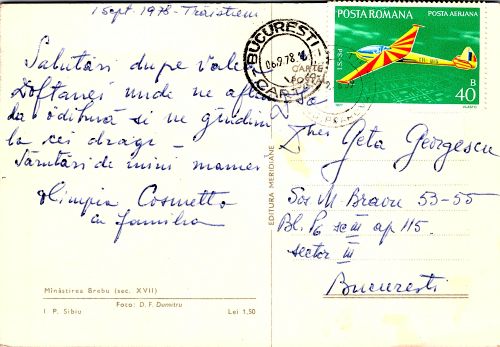 1 sept. 1978 - Trăisteni
Salutări dupe Valea
Doftanei unde ne aflăm
la odihnă și ne gîndim
la cei dragi -
Sărutări de mîini mamei
Olimpia Cosmetto
cu familia
Mînăstirea Brebu (sec. XVII)
Foto: D. F. Dumitru
I. P. Sibiu Lei 1,50
EDITURA MERIDIANE
BUCUREȘTI
06.9.78
CARTE
POȘTA ROMANA POSTA AERIANA
IS-3d
B
40
Geta Georgescu
Sos M. Bravu 53-55
Bl. P6 sc III ap 115
sector III
București